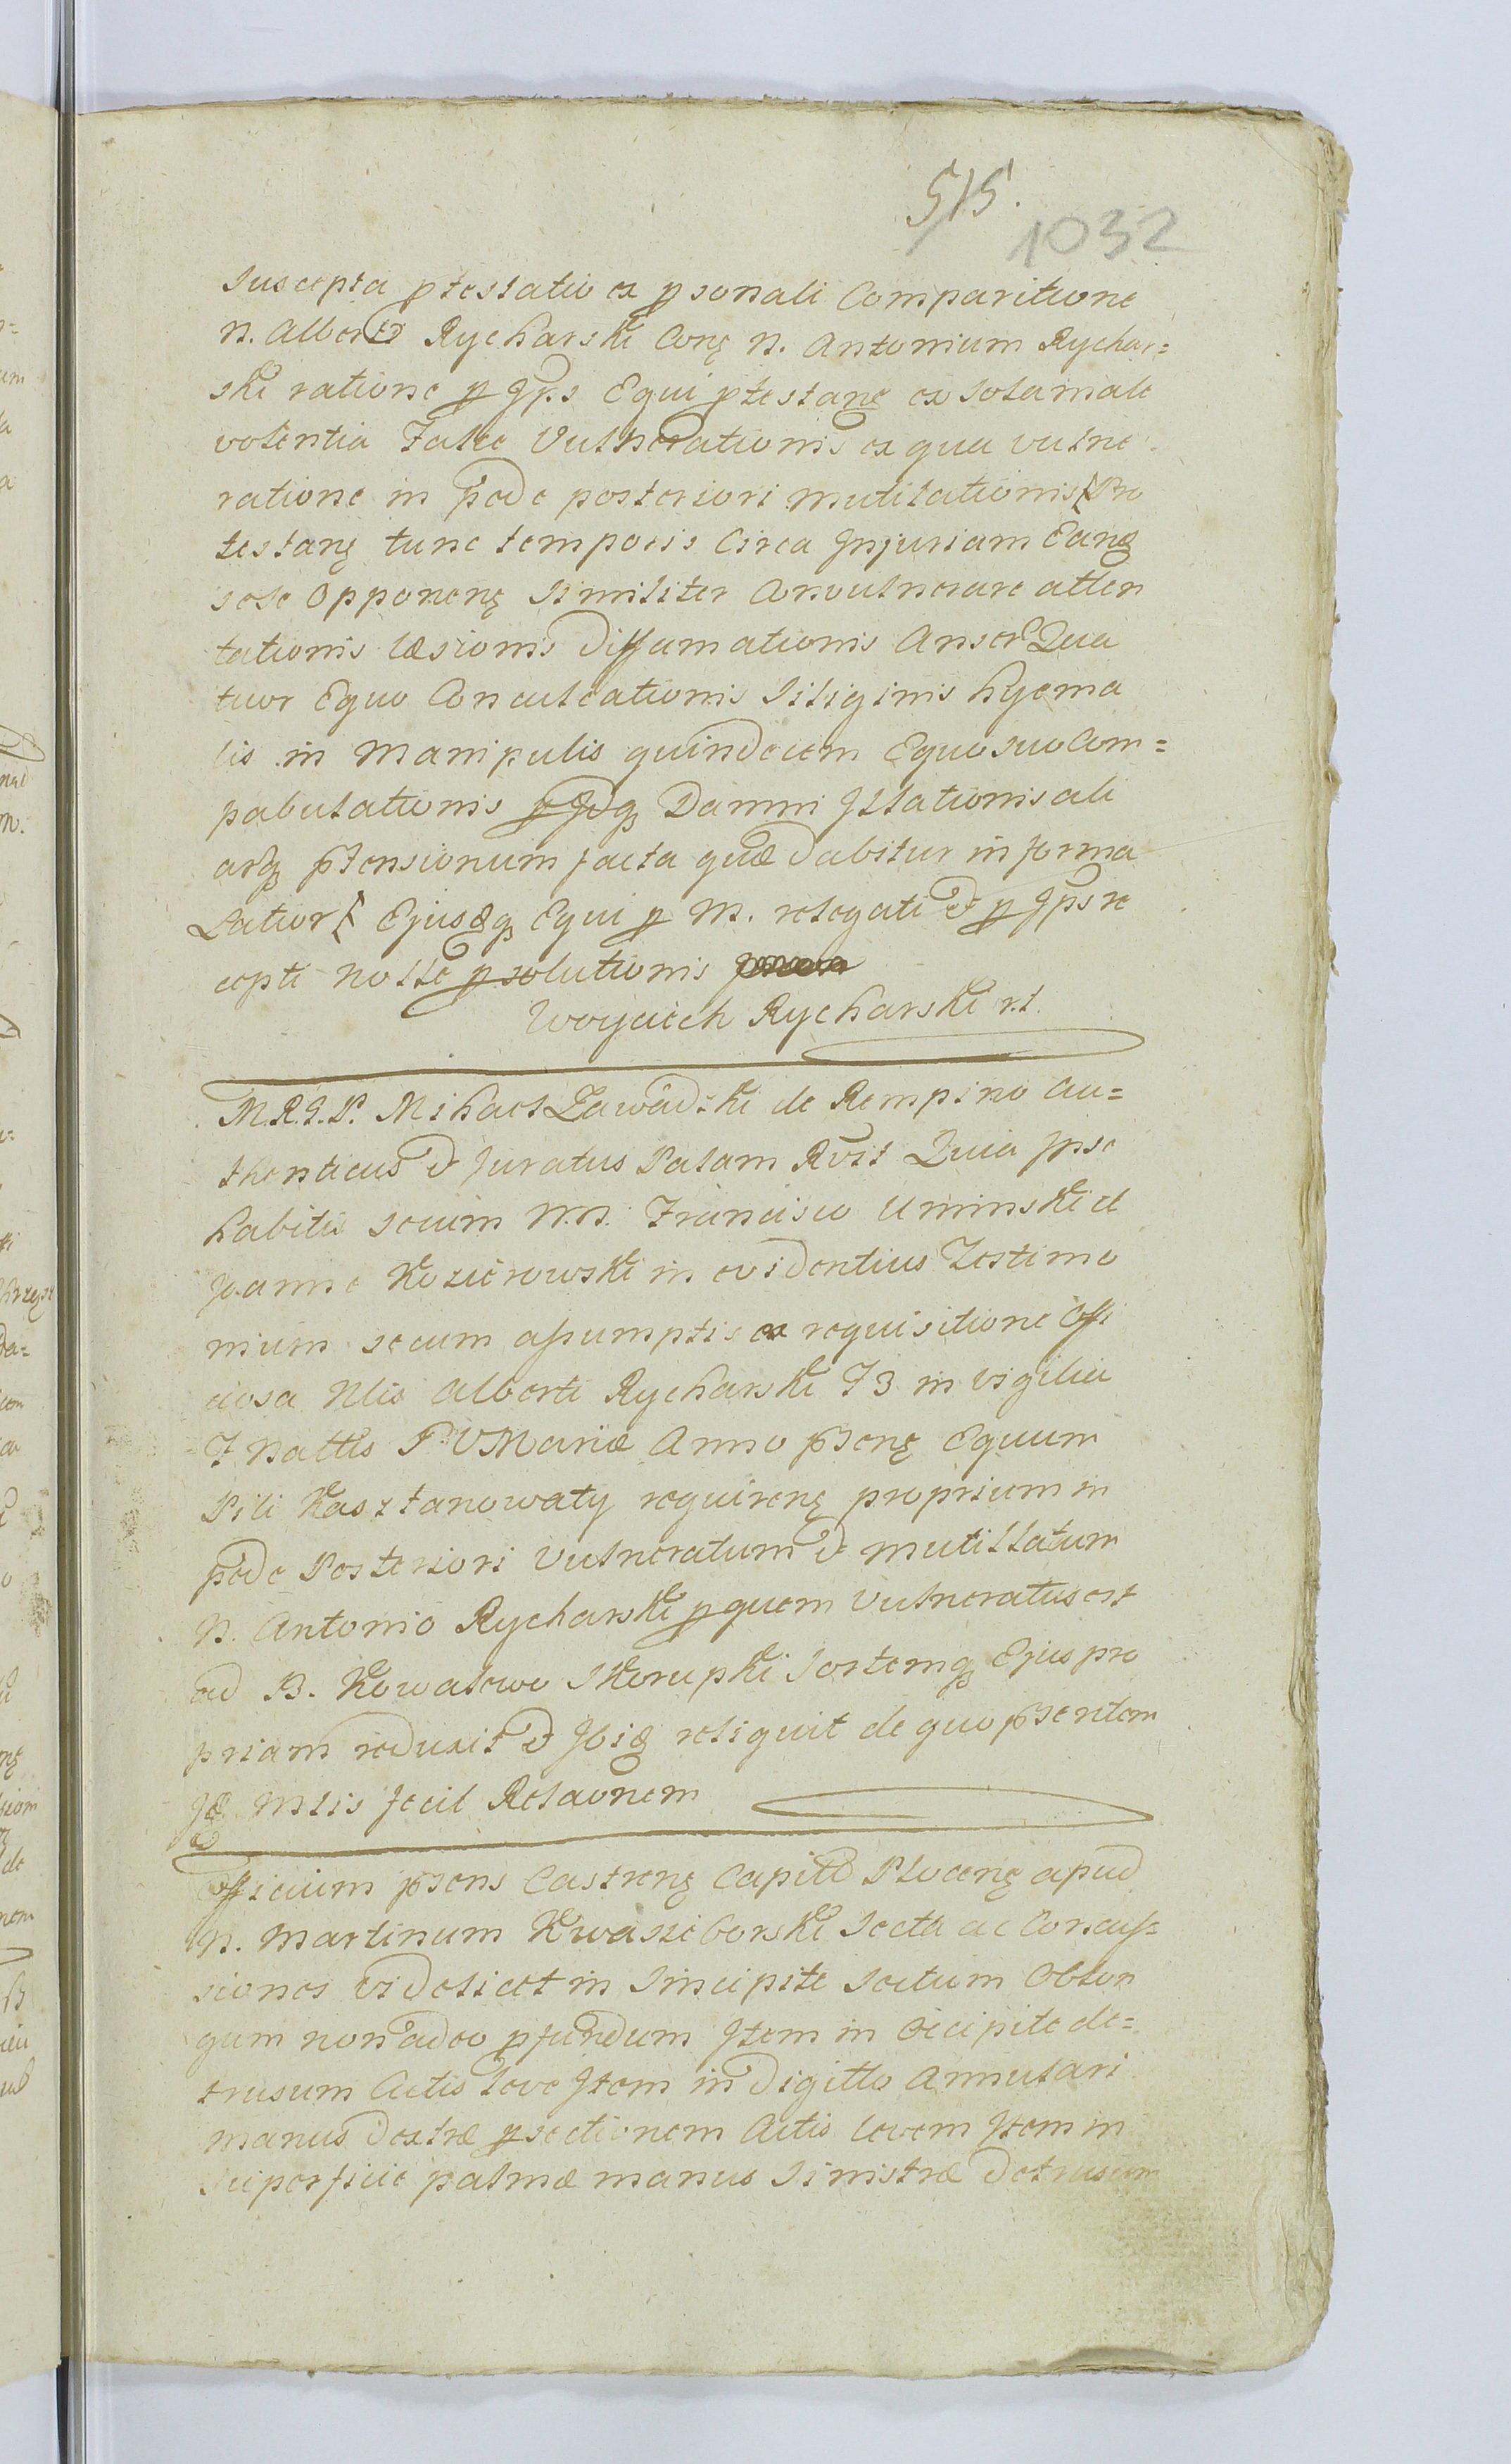 515.
1032
Suscepta ptestatio ex psonali Comparitione
N. Alberti Rycharski Conę N. Antonium Rychar=
ski ratione p Ips Equi ptestanę ex sola male
volentia Falce Vulnerationis ex qua vulne
ratione in pede posteriori mutilationis Pro
testanę tunc temporis Circa Injuriam Eanę
sese Opponenę Similiter Convulnerare atten
tationis læsionis diffamationis Anser Qua
tuor Equo Conculcationis Siliginis hyema
lis in Manipulis quindecim Equo suo Com=
pabulationis Damni Illationis ali
arq ptensionum facta quæ dabitur in forma
Latiori Ejusdq Equi p M. relegati et p Ips re
cepti nolle psolutionis
Woyciech Rycharski r.s.
M.R.G.P. Mihael Zawadzki de Rempino Au=
thenticus et Juratus Palam Rvit Quia Ipse
habitis secum N.N. Francisco Uminski et
Joanne Kozierowski in evidentius Testimo
nium secum assumptis ex requisitione Offi
ciosa Nlis Alberti Rycharski F3 in Vigilia
F Nattis B. V Mariæ Anno psenę Equum
Pili Kasztanowaty requirenę proprium in
pede Posteriori Vulneratum et mutillatum
N. Antonio Rycharski p quem Vulneratus est
ad B. Kowalewo Skorupki Sortemq Ejus pro
priam reduxit et Ibiq reliquit de quo psentem
Mtis fecit Relaonem
Officium psens Castrenę Capitle Plocenę apud
N. Martinum Kwassiborski Secta ac Concus=
siones videlicet in Sincipite Sectum Oblon
gum non adeo pfundum Item in Occipite de=
trusum Cutis leve Item in digitto Annulari
manus dextræ psectionem Cutis levem Item in
Superficie palmæ manus Sinistræ detrusum